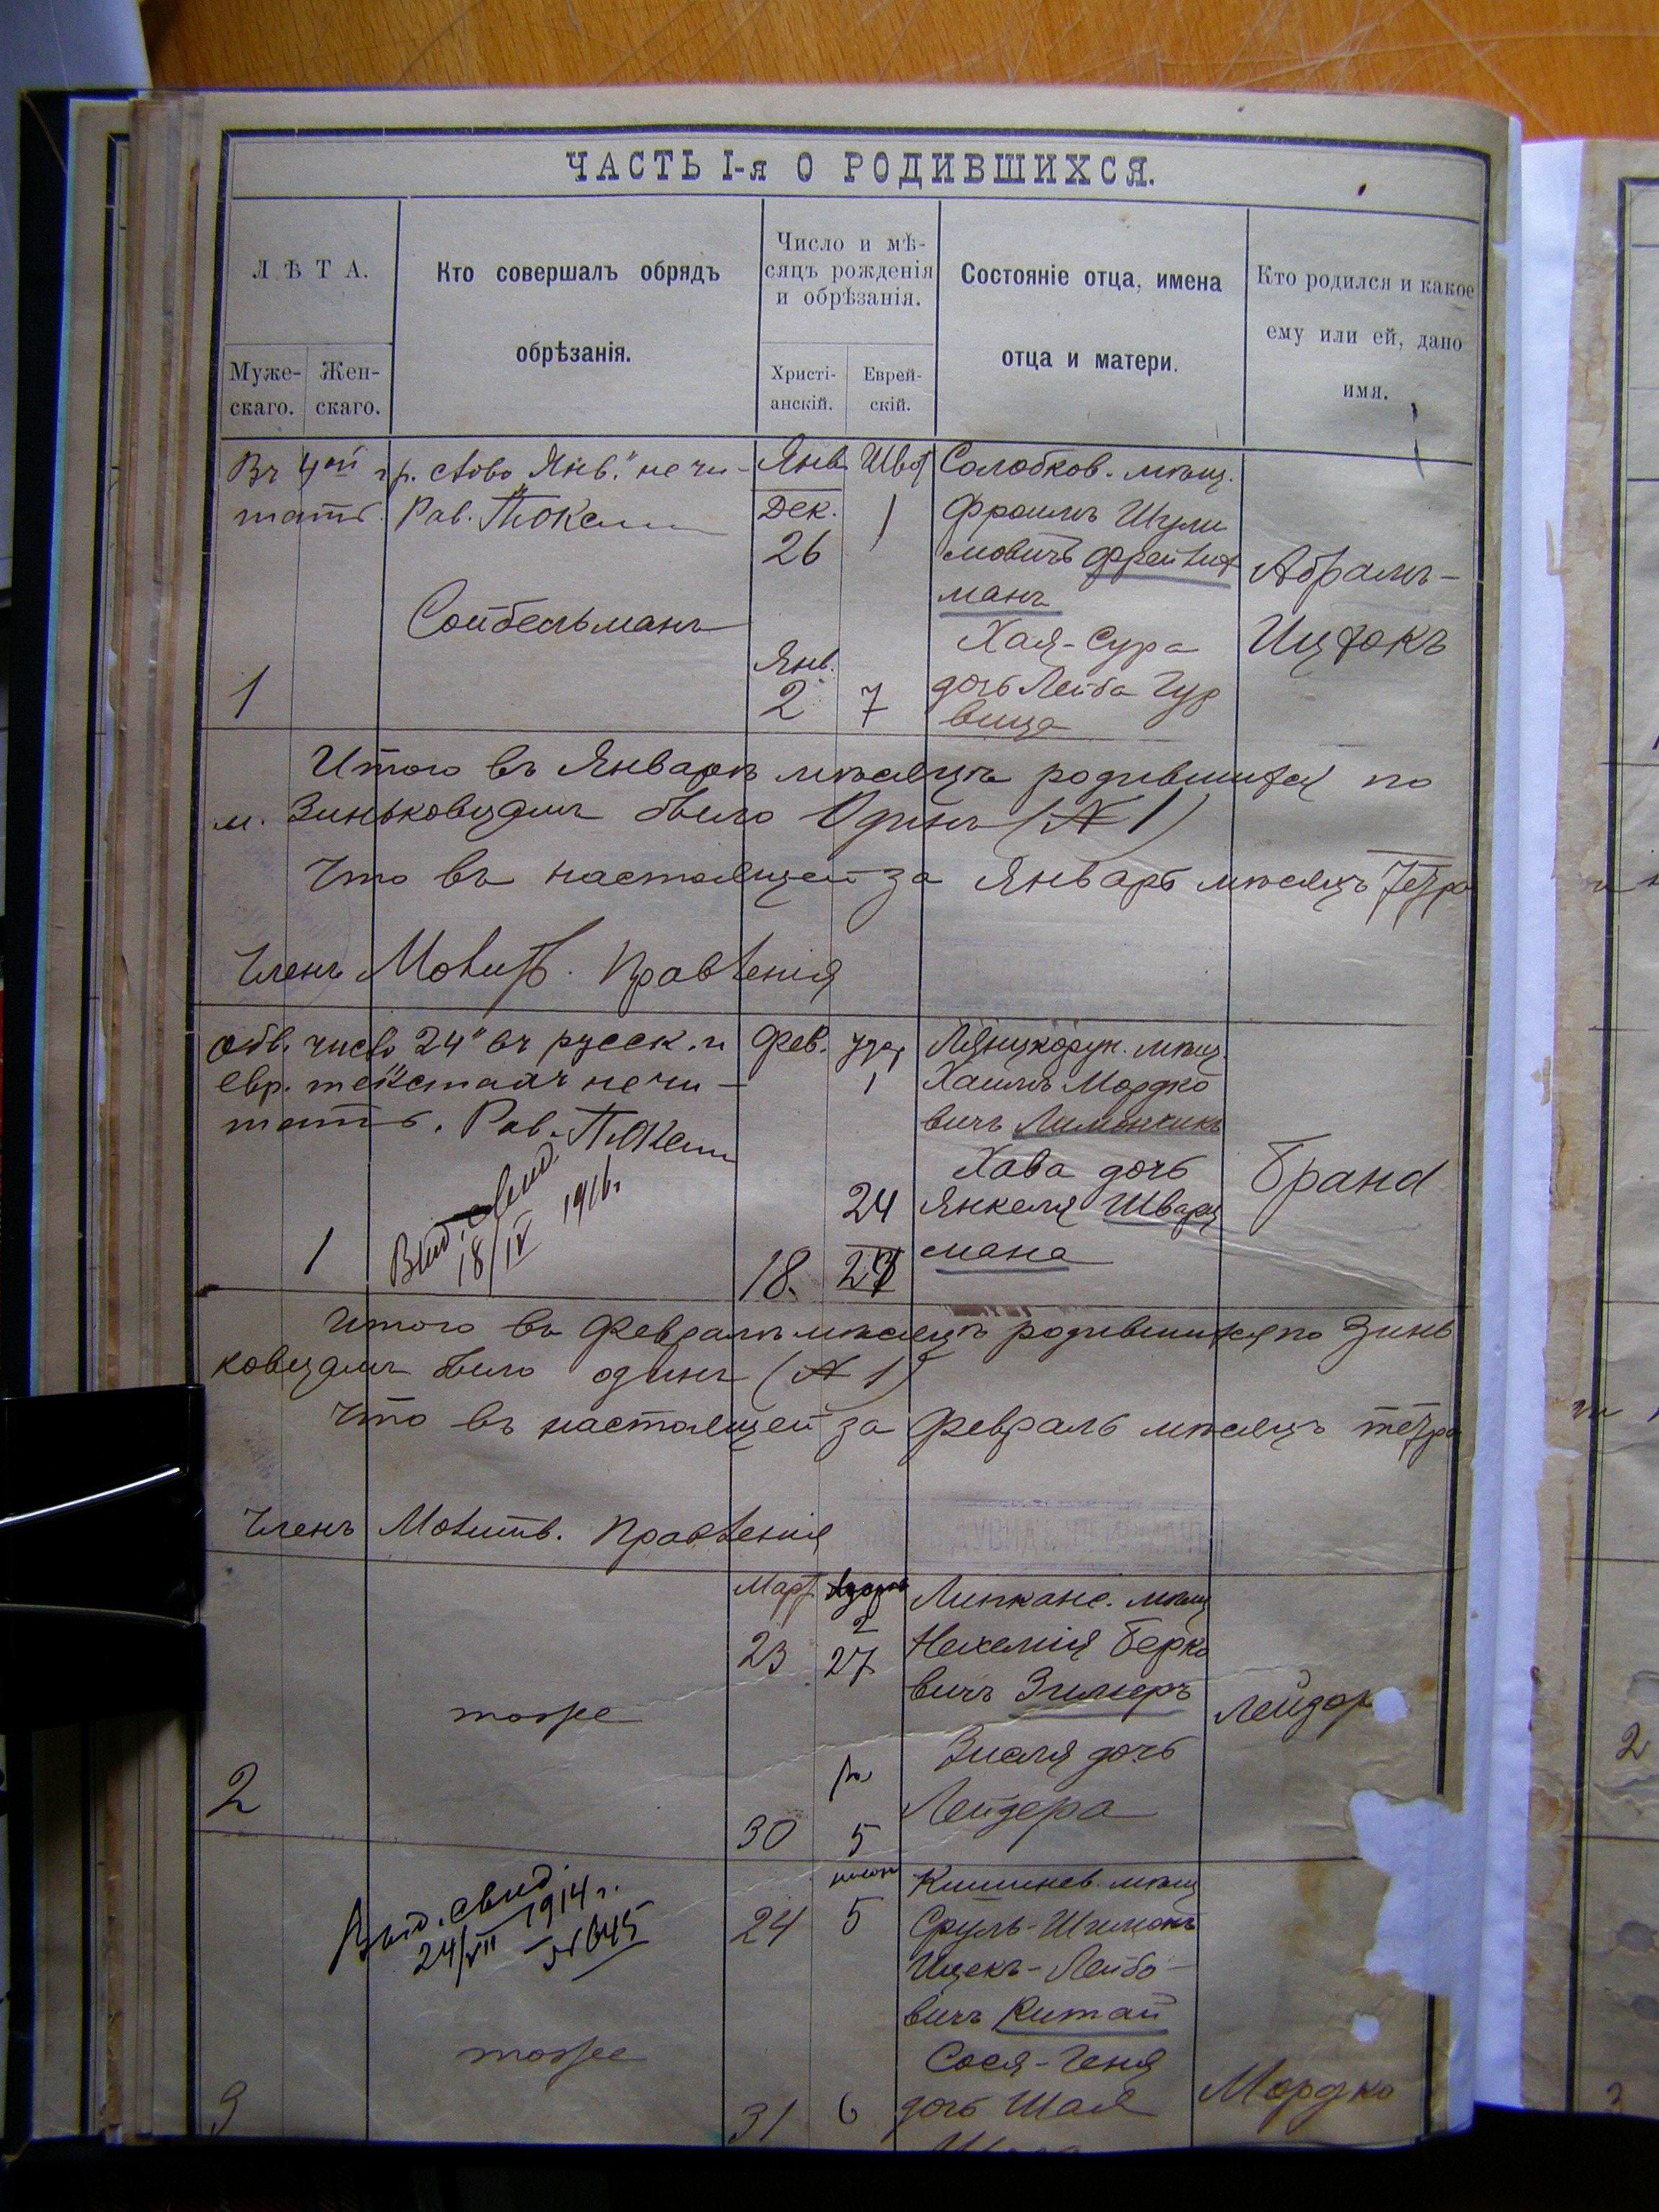 ЧАСТЬ I-я О РОДИВШИХСЯ.
ЛѢТА.
Муже-
скаго.
Жен-
скаго.
Кто совершалъ обрядъ
обрѣзанія.
Число и мѣ-
сяцъ рожденія
и обрѣзанія.
Христі-
анскій.
Еврей-
скій.
Состояніе отца, имена
отца и матери.
Кто родился и какое
ему или ей, дано
имя.
Въ 4ой гр. слово "Янв." не чи-
тать. Рав.
Сойбельманъ
1
Янв.
Дек.
26
Янв.
2
Шват
1
7
Солобков. мѣщ.
Фроимъ Шули
мовичъ Фрейнт
манъ
Хая-Сура
дочь Лейба Гур
вица
Абрамъ-
Ицхокъ
Итого въ Январѣ мѣсяцѣ родившихся по
м. Зиньковцамъ было Одинъ (№ 1)
Что въ настоящей за Январь мѣсяцъ тетра
Членъ Молитв. Правленія
число "24" въ русск. и
евр. текстахъ не чи-
тать. Рав.
Выд. свид.
18/IV 1916г.
1
Фев.
18.
1
24
Лянцкорун. мѣщ.
Хаимъ Мордко
вичъ Лимончикъ
Хава дочь
Янкеля Шварц
мана
Бранд
Итого въ Февралѣ мѣсяцѣ родившихся по Зинь
ковцамъ было одинъ (№ 1)
Что въ настоящей за Февраль мѣсяцъ тетра
Членъ Молитв. Правленія
2
тоже
Март.
23
30
2
27
5
Липканс. мѣщ
Нехемія Берко
вичъ Зингеръ
Зисля дочь
Лейзера
Лейзор
Выд. свид.
24/VII 1914 г.
№ 645
тоже
3
24
31
5
6
Кишинев. мѣщ
Сруль-Шимонъ
Ицекъ-Лейбо-
вичъ Китай
Сося-Геня
дочь Шая
Мордко
2
3